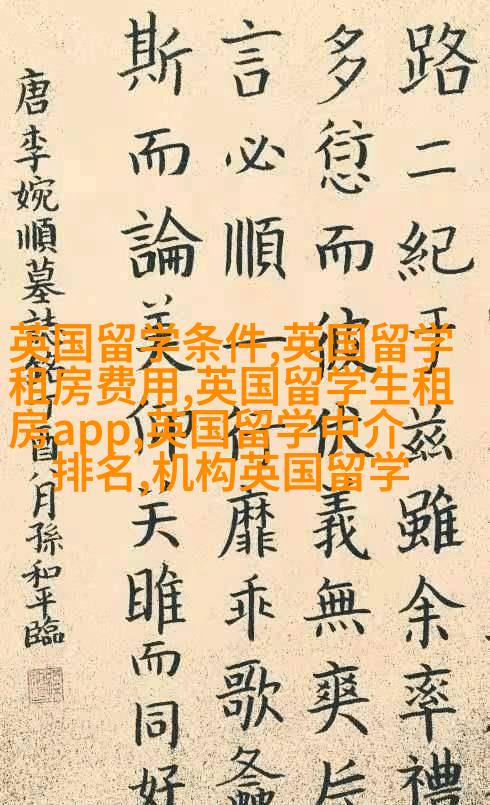 路二紀于兹雖余率禮
多愆而彼伏義無爽
言必順一行靡乖歌
斯而論美仰关睢而同好
唐李婉順墓誌銘丁酉月孫和平臨
英国留学条件,英国留学
租房费用,英国留学生租
房app,英国留学中介
排名,机构英国留学